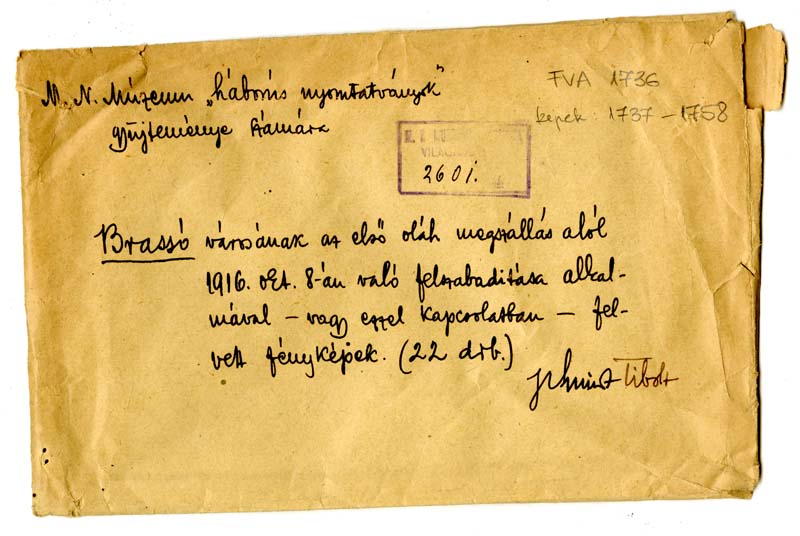 M. N. Múzeum „háborús nyomtatványok”
gyűjteménye számára
FVA 1736
képek: 1737 – 1758
2601.
Brassó városának az első oláh megszállás alól
1916. okt. 8-án való felszabadítása alkal-
mával – vagy ezzel kapcsolatban – fel-
vett fényképek. (22 drb.)
Tibolt